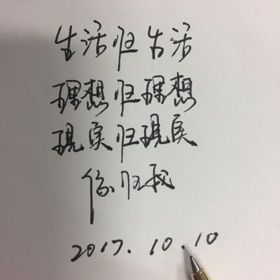 生活归生活
理想归理想
现实归现实
你归我
2017.10.10